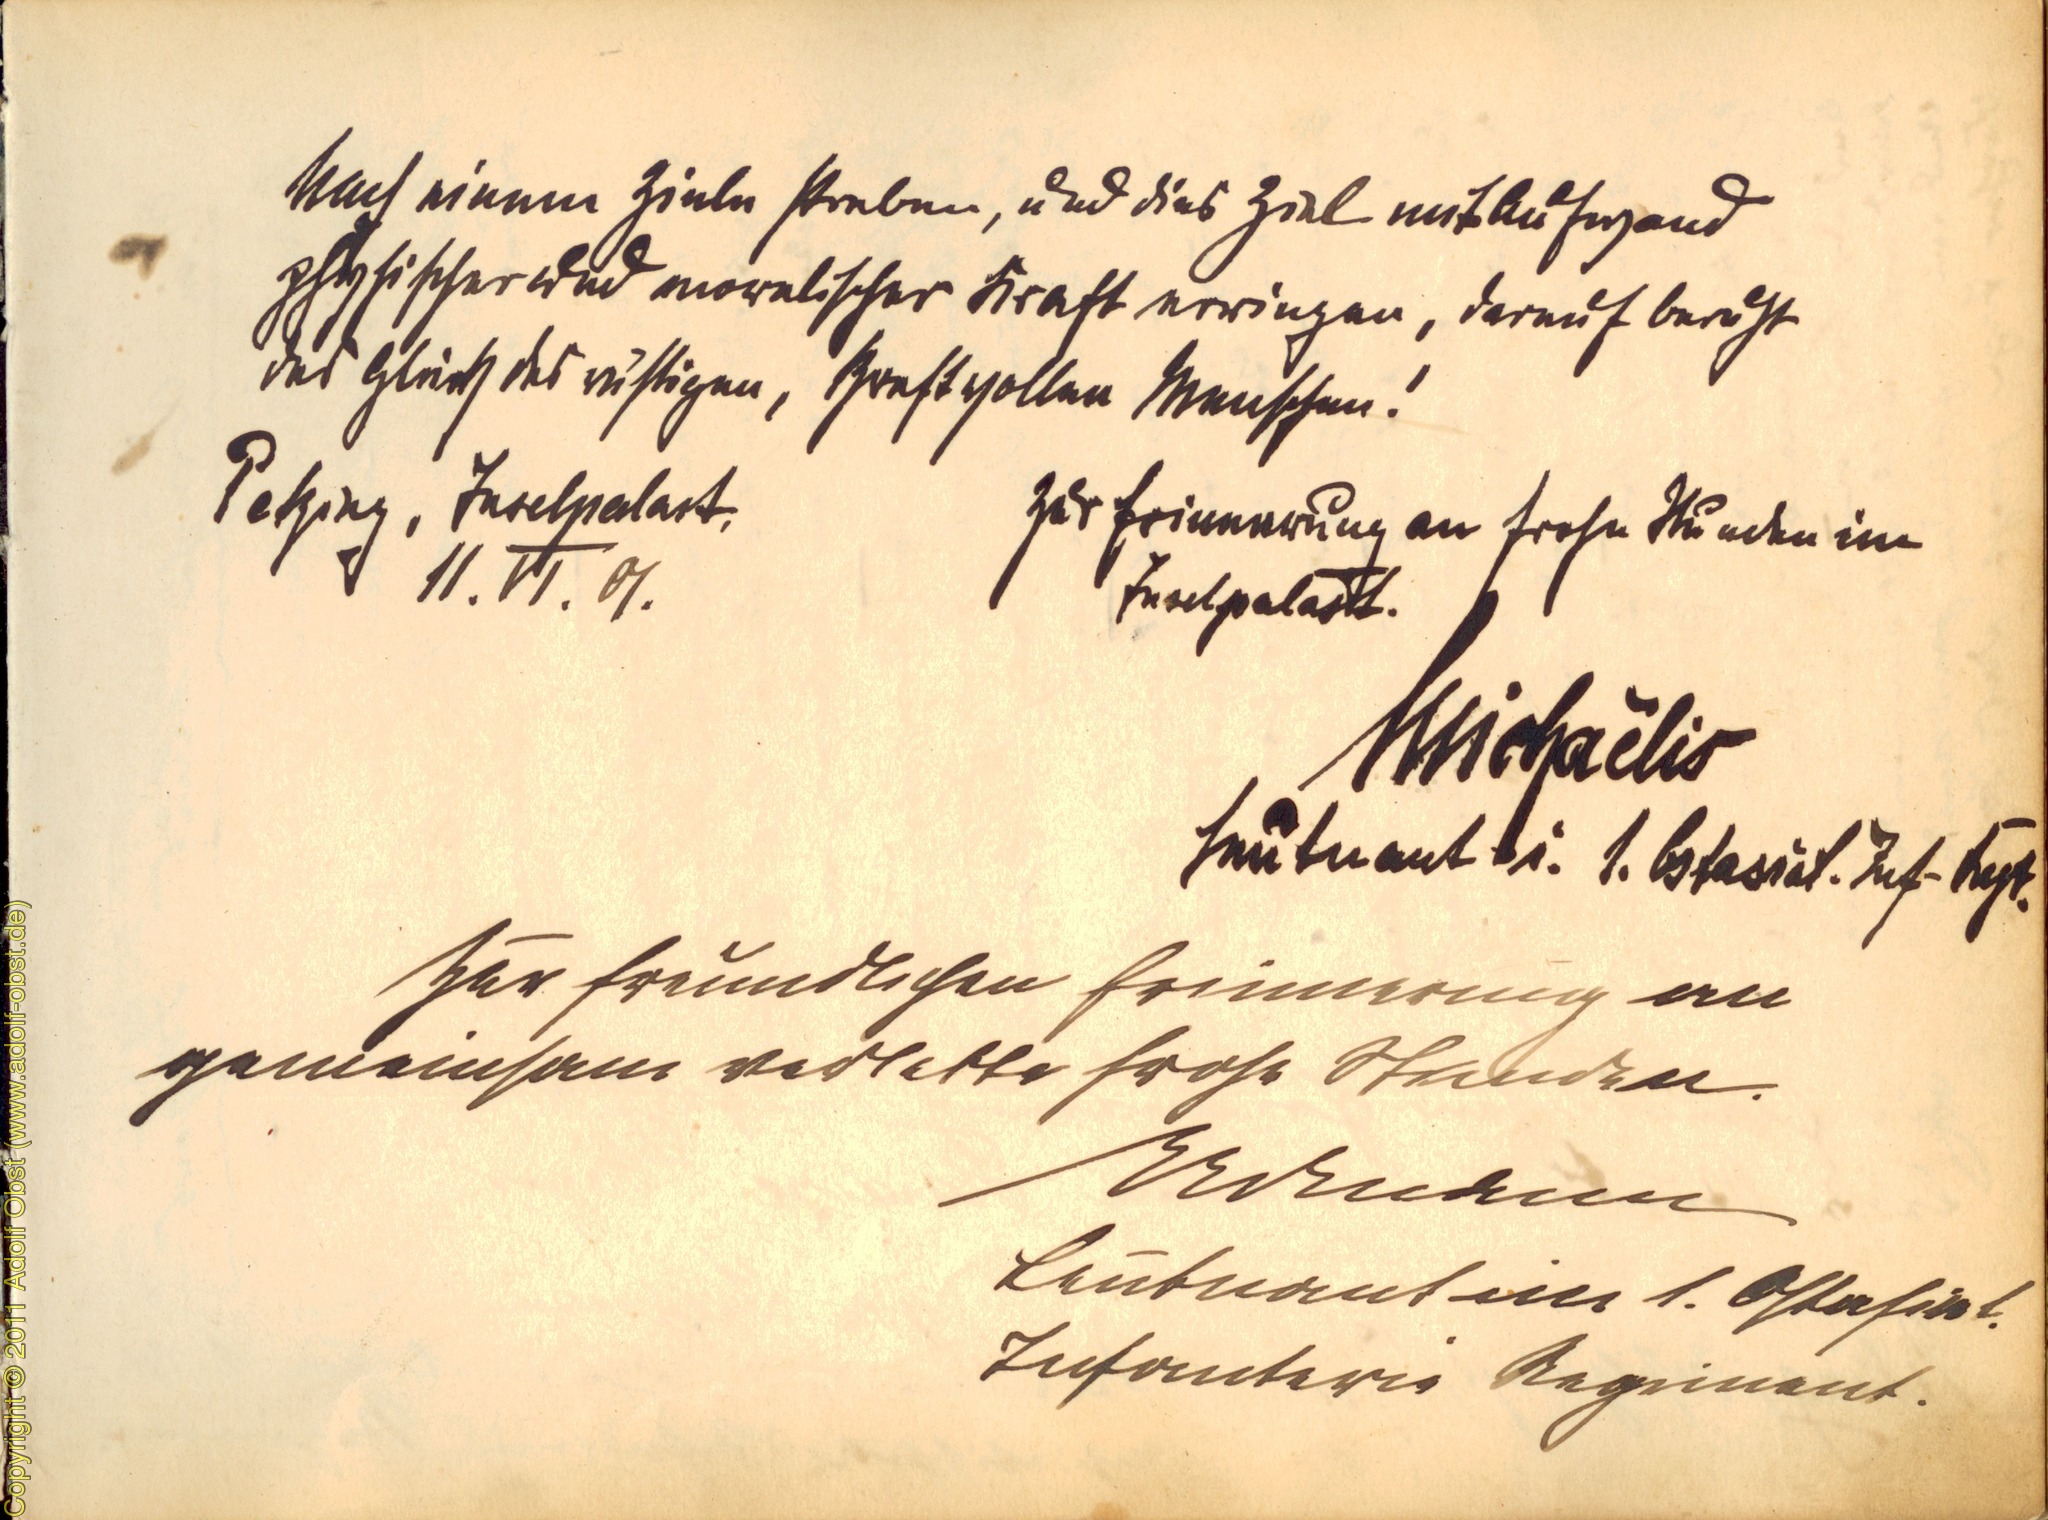 Nach einem Ziele streben, und dies Ziel mit Aufwand
physischer und moralischer Kraft erringen, darauf beruht
das Glück des rüstigen, kraftvollen Menschen!
Peking, Inselpalast,
11. VI. 01.
Zur Erinnerung an frohe Stunden im
Inselpalast.
Michaëlis
Leutnant i. 1. Ostasiat. Inf. Rgt.
Zur freundlichen Erinnerung an
gemeinsam verlebte frohe Stunden.
Erdmann
Leutnant im 1. Ostasiat.
Infanterie Regiment.
Copyright © 2011 Adolf Obst (www.adolf-obst.de)